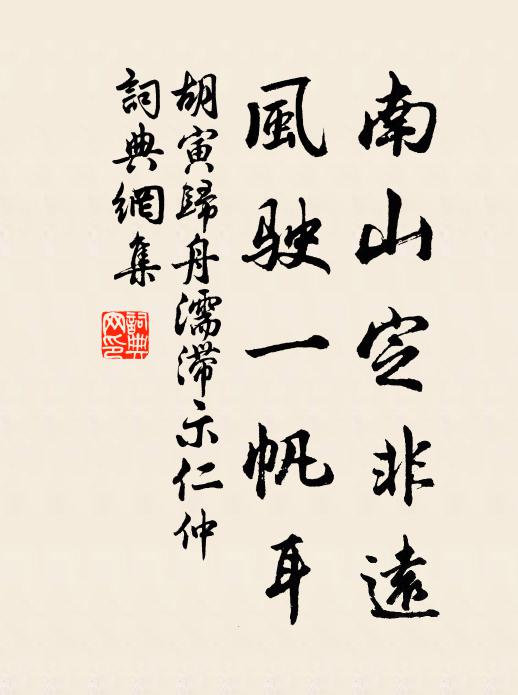 南山定非遠
風駛一帆耳
胡寅歸舟濡滯示仁仲
詞典網集
詞典網印